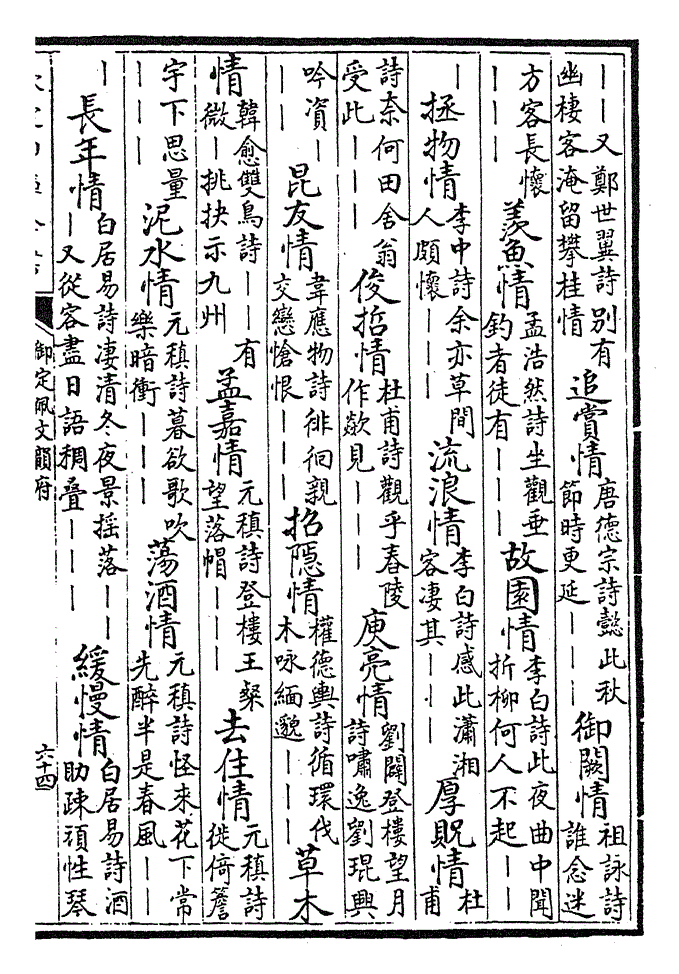 ｜｜又鄭世翼詩別有幽棲客淹留攀桂情追賞情唐德宗詩懿此秋節時更延｜｜｜御闕情祖詠詩誰念迷
方客長懷｜｜｜羡魚情孟浩然詩坐觀垂釣者徒有｜｜｜故園情李白詩此夜曲中聞折柳何人不起｜｜
｜拯物情李中詩余亦草間人頗懷｜｜｜流浪情李白詩感此瀟湘客凄其｜｜｜厚貺情杜甫
詩奈何田舍翁受此｜｜｜俊哲情杜甫詩觀乎舂陵作歘見｜｜｜庾亮情劉闢登樓望月詩嘯逸劉琨興
吟資｜｜｜昆友情韋應物詩徘徊親交戀愴恨｜｜｜招隱情權德輿詩循環伐木咏緬邈｜｜｜草木
情韓愈雙鳥詩｜｜有微｜挑抉示九州孟嘉情元稹詩登樓王粲望落帽｜｜｜去住情元稹詩徙倚簷
宇下思量｜｜｜泥水情元稹詩暮欲歌吹樂暗衝｜｜｜蕩酒情元稹詩怪來花下常先醉半是春風｜｜
｜長年情白居易詩凄清冬夜景摇落｜｜｜又從容盡日語稠疊｜｜｜緩慢情白居易詩酒助疎頑性琴
御定佩文韻府
六十四